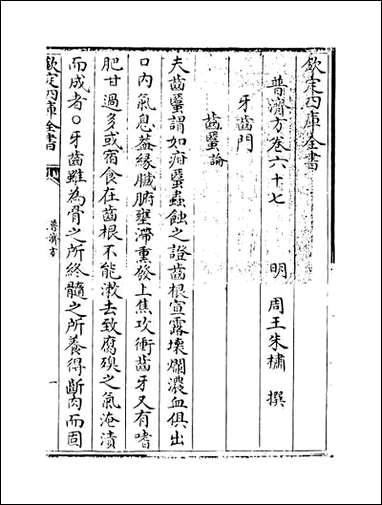 欽定四庫全書
普濟方卷六十七
明 周王朱橚 撰
牙齒門
齒䘌論
夫齒䘌謂如疳䘌蟲蝕之證齒根宣露壊爛濃血俱出
口内氣息葢緣臓腑壅滯熏發上焦攻衝齒牙又有嗜
肥甘過多或宿食在齒根不能漱去致腐㙲之氣淹漬
而成者○牙齒雖為骨之所終髓之所養得齗肉而固
欽定四庫全書
普濟方
一